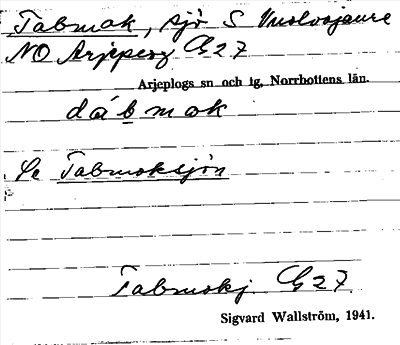 Tabmak, sjö S Vuolvojaure
NO Arjeplog G27
Arjeplogs sn och tg, Norrbottens län.
dábmak
Se Tabmoksjön
Tabmokj G27
Sigvard Wallström, 1941.